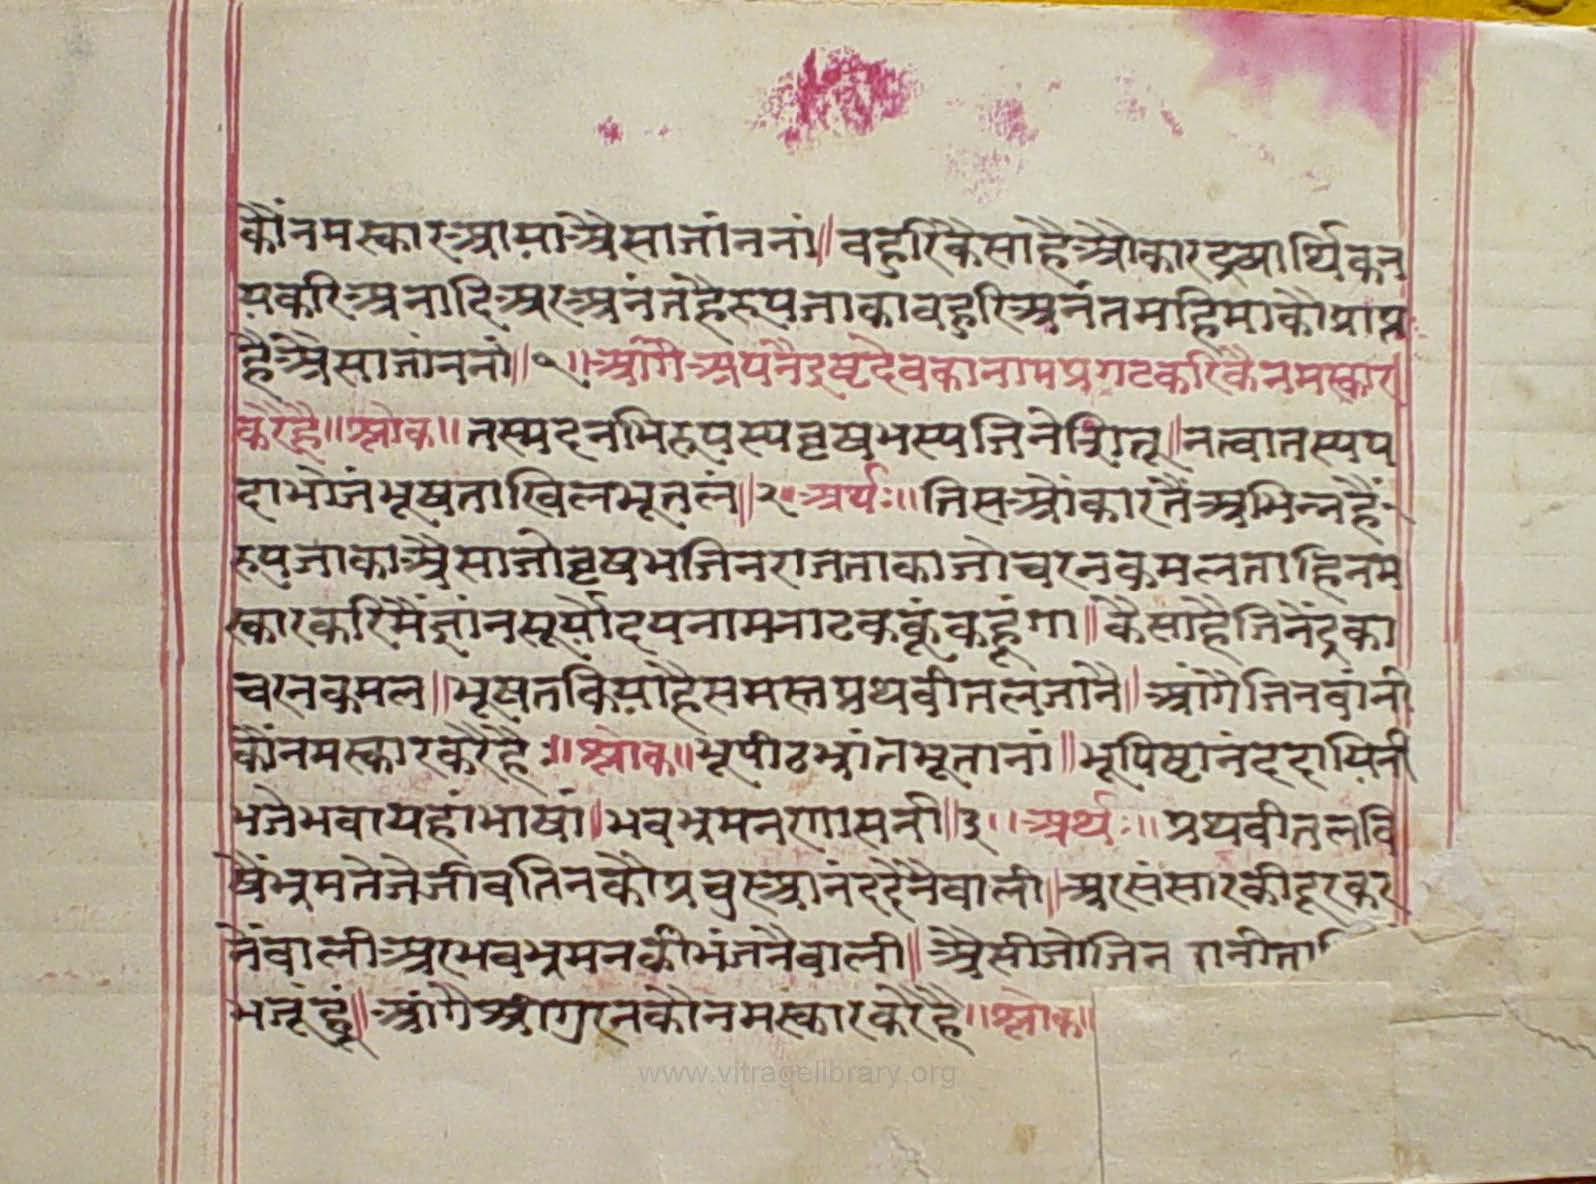 कौंनमस्कारआमाअैसाजांननां॥ वहुरिकैसाहैऔकारद्रव्यार्थिकन
यकरिअनादिअरअनंतहैरूपजाकावहुरिअनंतमहिमाकौप्राप्त
हैअैसाजांननां॥१॥आंगैअपनैइष्टदेवकानामप्रगटकरिकैनमस्कार
करैहै॥श्लोक॥ तस्पदनभिरूपस्पवृषभस्पजिनेशितू॥नत्वातस्पप
दाभोजंभूषताखिलभूतलं॥२॥अर्थः॥तिसओंकारतैंअभिन्नहैं
रूपजाकाअैसाजोवृषभजिनराजताकाजोचरनकमलताहिनम
स्कारकरिमैंज्ञांनसूर्योदयनामनाटककूंकहूंगा॥कैसाहैजिनैंद्रका
चरनकमल॥भूषतकियाहैसमस्तप्रथवीतलजानै॥आंगैजिनवांनी
कौंनमस्कारकरैंहै॥श्लोक॥भूपीठभ्रांतभूतानां॥भूपिष्टानंददायिनी
भजेभवायहांभाषां॥भवभ्रमनरागासनी॥३॥अर्थः॥प्रथवीतलवि
षैंभ्रमतेजेजीवतिनकौप्रचुरआनंददैनैवाली॥अरसंसारकीदूरकर
नैंवालीअरभवभ्रमनकीभंजनैवाली॥अैसीजोजिन
भजूंहूं॥आंगैश्रीगुरनकौनमस्कारकरैहै॥श्लोक॥
www.vitragelibrary.org